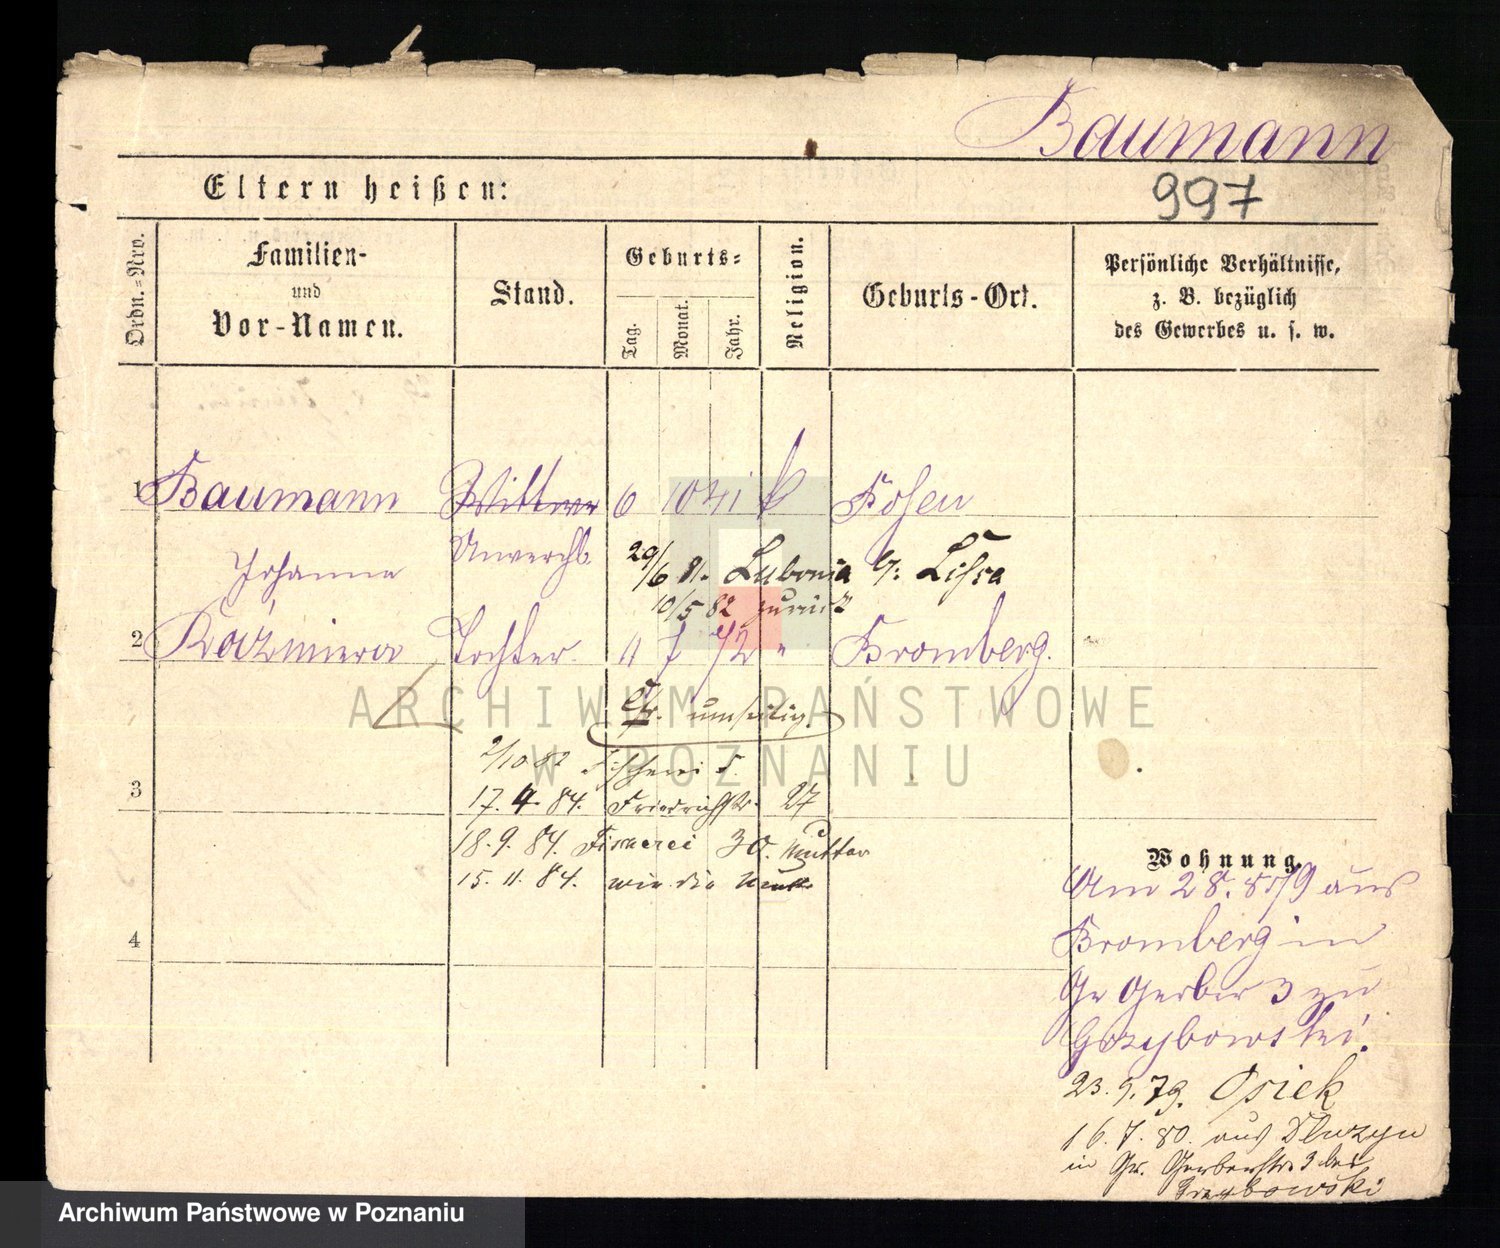 Baumann
Eltern heißen:
997
Ordn.=Nro.
Familien-
und
Vor-Namen.
Stand.
Geburts=
Tag.
Monat.
Jahr.
Religion.
Geburts-Ort.
Persönliche Verhältnisse,
z. B. bezüglich
des Gewerbes u. s. w.
1 Baumann Wittwe 6 10 41 k Posen
Johanna Unverehl.
29/6 81. Lubonia Kr. Lissa
10/5 82 zurück
2 Kazmiera Tochter 11 7 72 " Bromberg.
umseitig.
2/10 82 Fischerei 5.
3
17. 4. 84. Friedrichstr. 27
18. 9. 84. Fischerei 30. Mutter
15. 11. 84. wie die Mutter
4
Wohnung.
Am 28. 8/79 aus
Bromberg in
Gr Gerber 3 zu
Grzybowski.
23. 9. 79. Osiek
16. 7. 80. aus Dluzyn
in Gr. Gerberstr. 3 bei
Grzybowski
ARCHIWUM PAŃSTWOWE
W POZNANIU
Archiwum Państwowe w Poznaniu